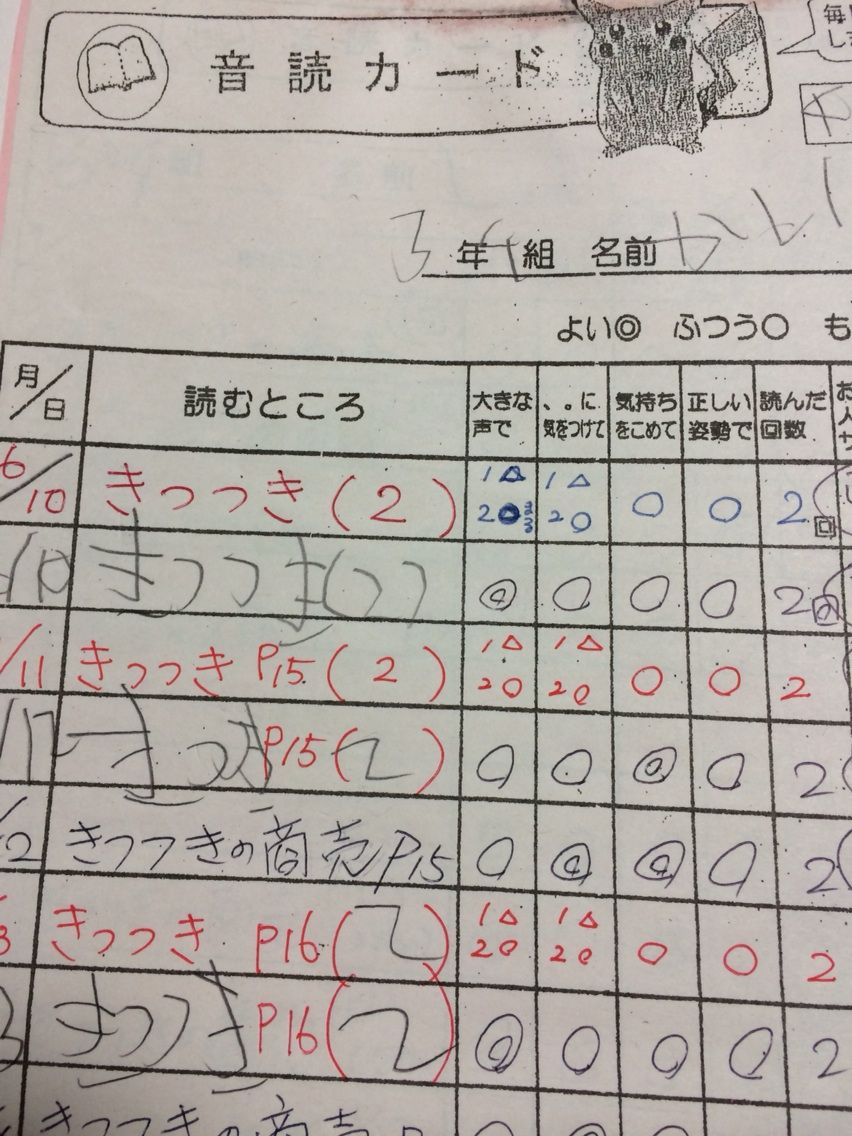 音読カード
毎
し
3年 組 名前 かいと
よい◎ ふつう○ も
月/日 読むところ 大きな声で 、。に気をつけて 気持ちをこめて 正しい姿勢で 読んだ回数 お
6/10 きつつき(2) 1△ 2○ 1△ 2○ ○ ○ 2回
/10 きつつき(2) ◎ ○ ○ ○ 2回
/11 きつつき P15(2) 1△ 2○ 1△ 2○ ○ ○ 2
/11 きつつき P15(2) ○ ○ ◎ ○ 2
/12 きつつきの商売 P15 ○ ◎ ◎ ○ 2
3 きつつき P16(2) 1△ 2○ 1△ 2○ ○ ○ 2
3 きつつき P16(2) ◎ ○ ○ ○ 2
きつつきの商売